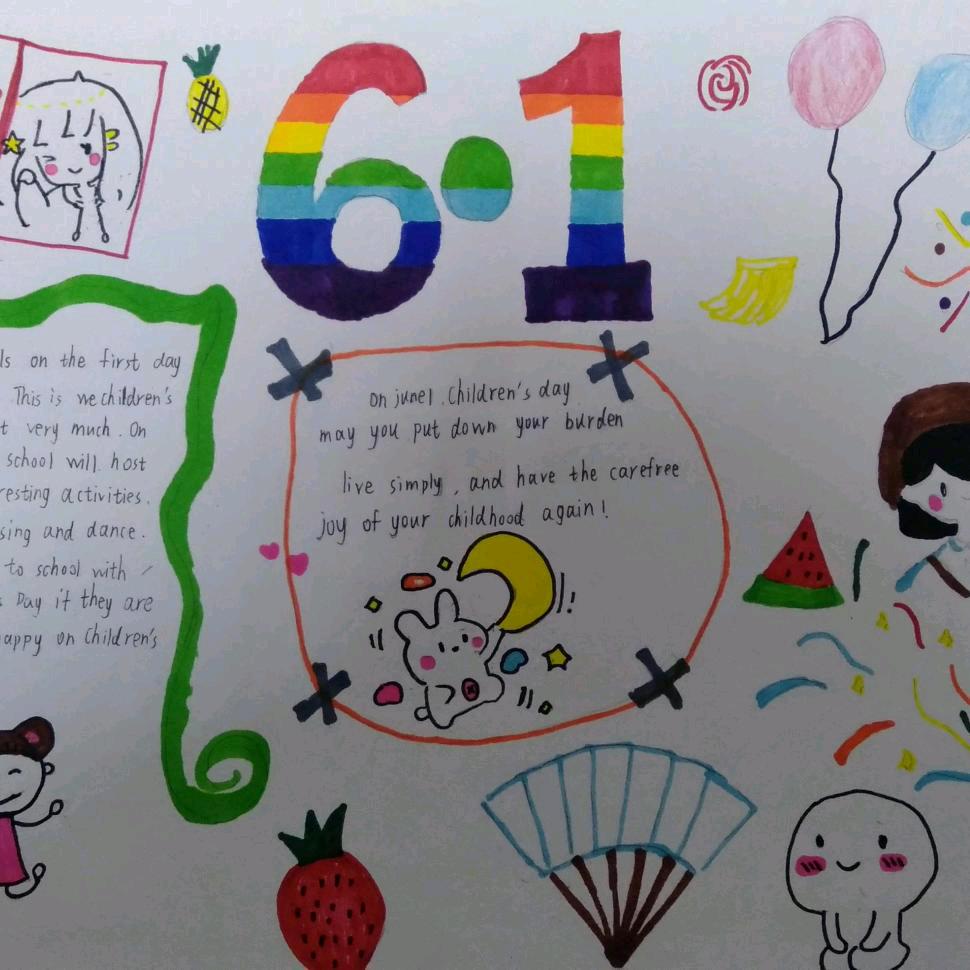 6·1
ls on the first day
This is we children's
t very much. On
school will host
resting activities.
sing and dance.
to school with
s Day if they are
appy on Children's
on june1. Children's day
may you put down your burden
live simply, and have the carefree
joy of your childhood again!